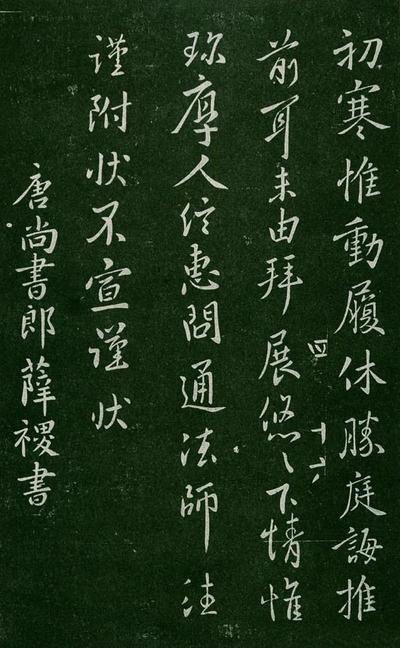 初寒惟動履休勝庭誨推
前耳未由拜展悠々下情惟
珎厚人信惠問通法師往
謹附状不宣謹状
唐尚書郎薛稷書
四
十六